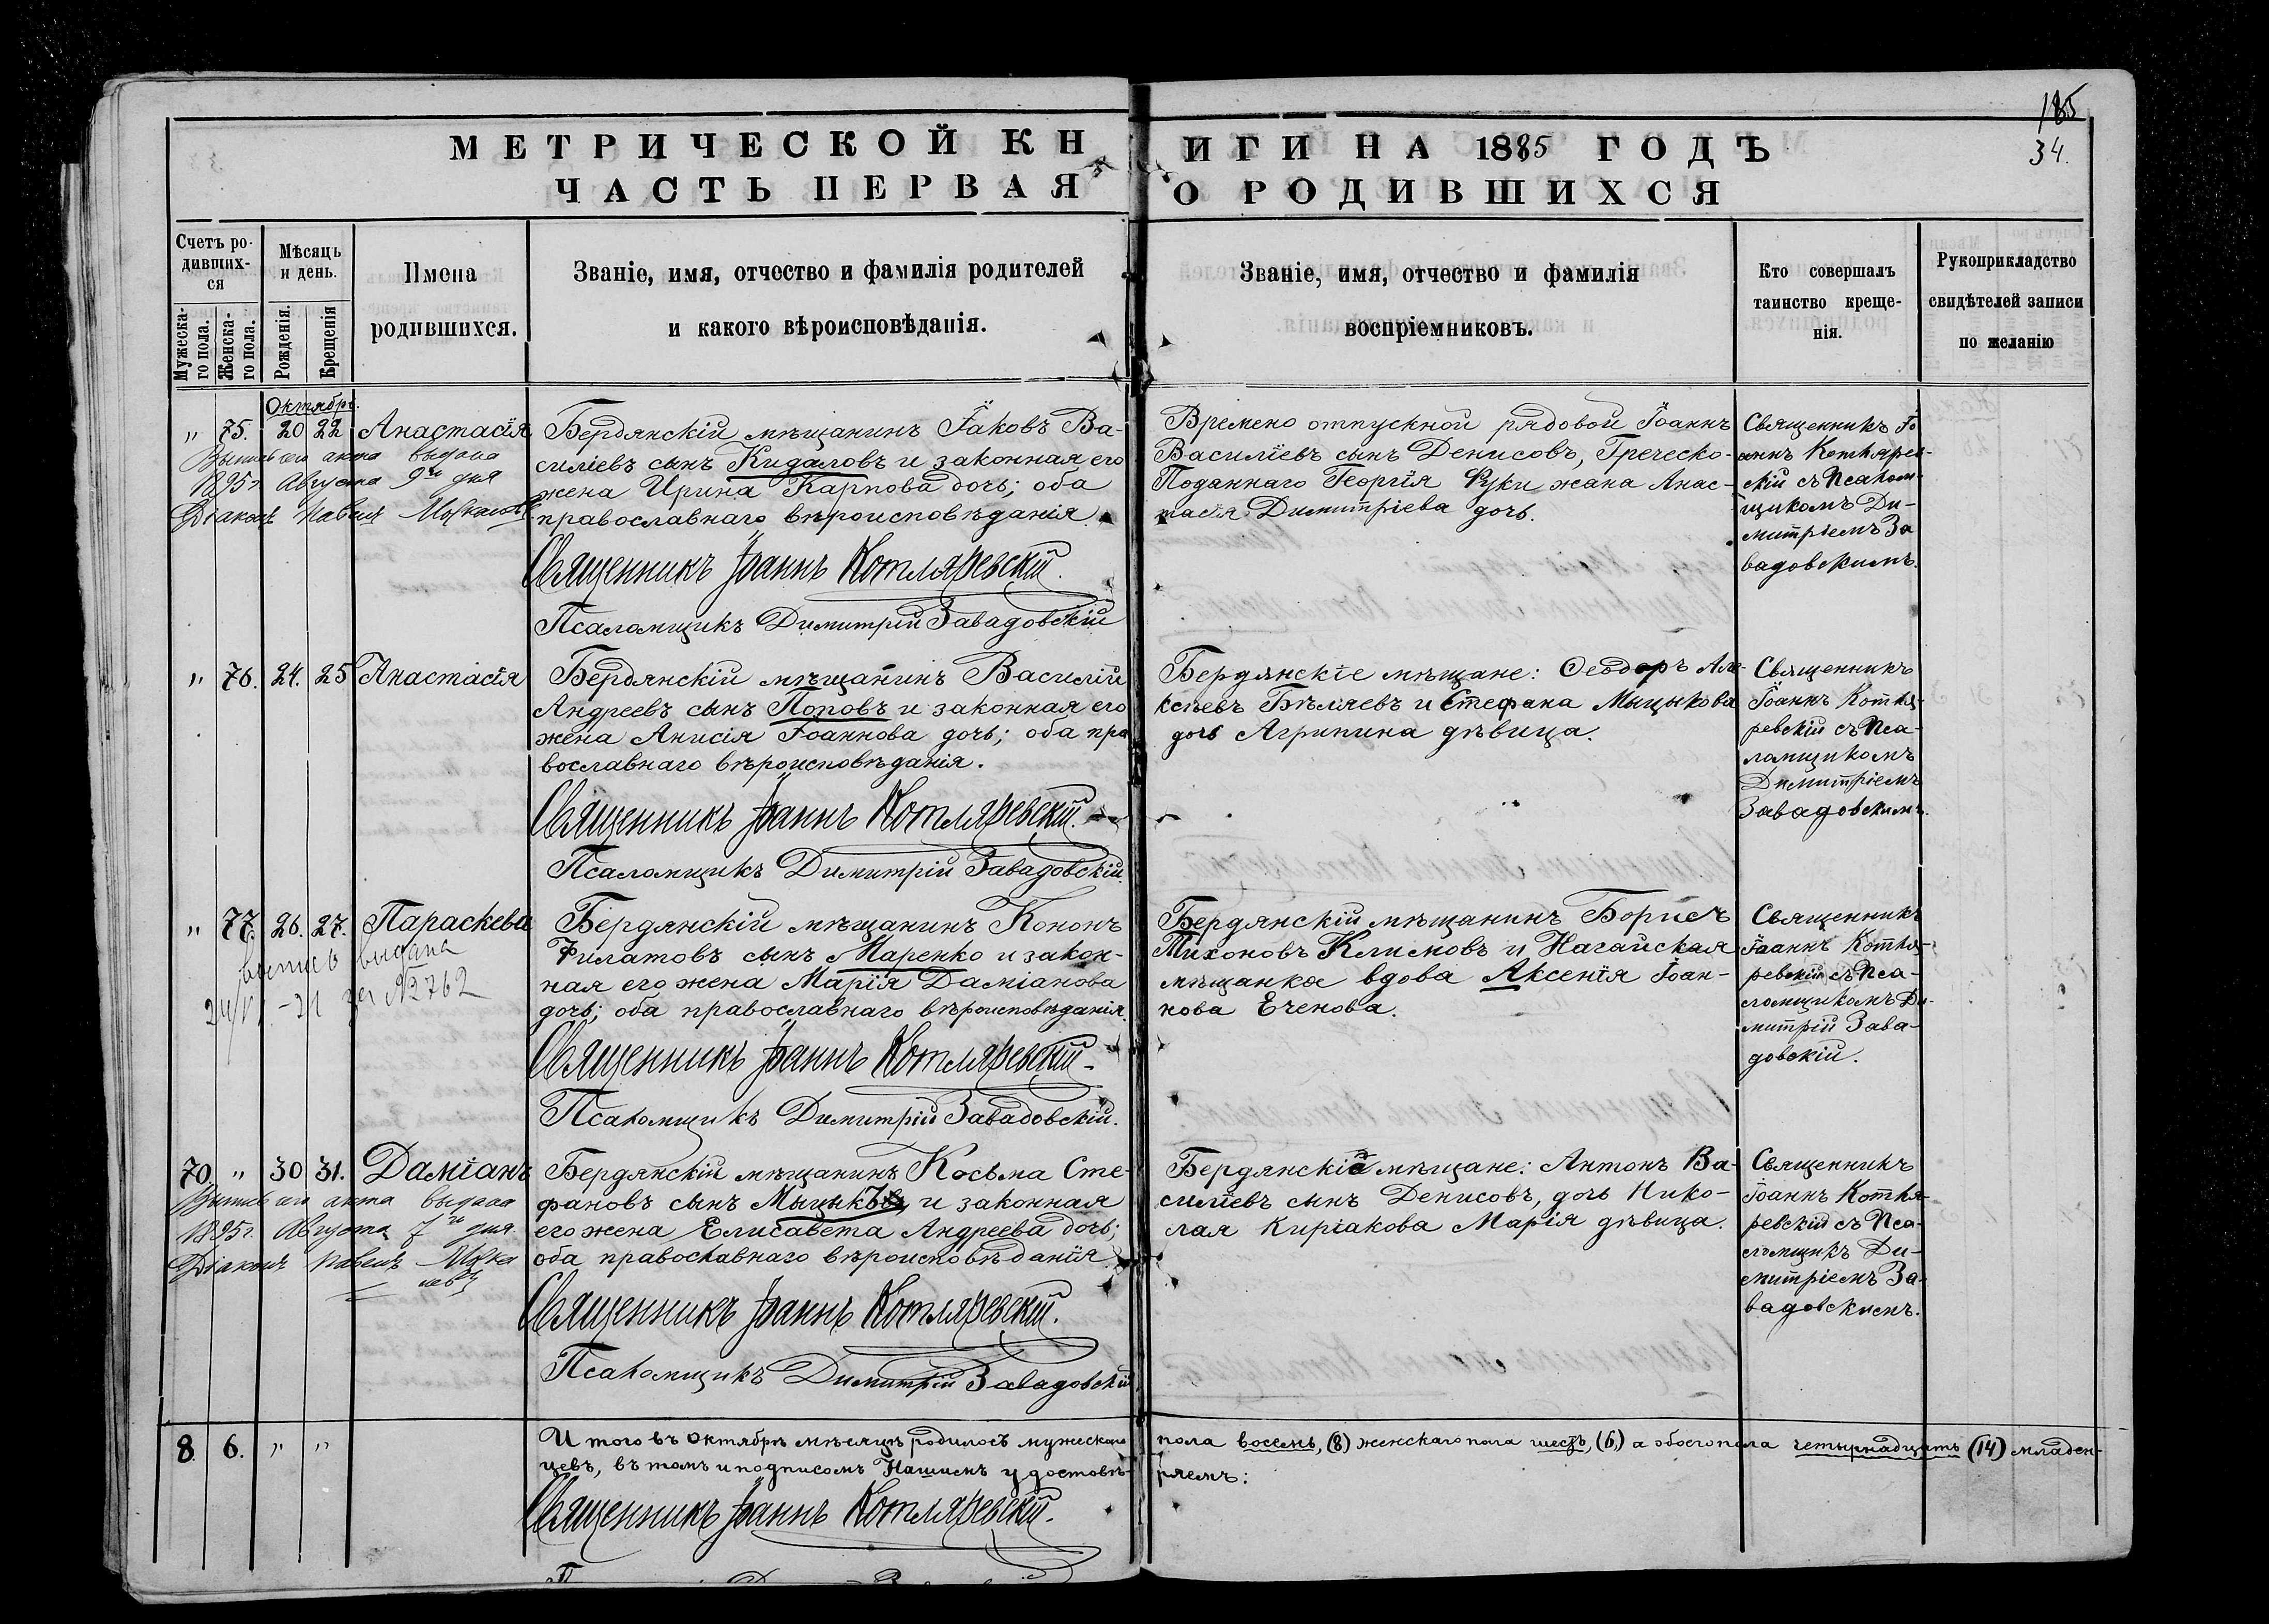 185
34.
МЕТРИЧЕСКОЙ КНИГИ НА 1885 ГОДЪ
ЧАСТЬ ПЕРВАЯ О РОДИВШИХСЯ
Счетъ ро-
дивших-
ся
Мужеска-
го пола.
Женска-
го пола.
Мѣсяцъ
и день.
Рожденія.
Крещенія
Имена
родившихся.
Званіе, имя, отчество и фамилія родителей
и какого вѣроисповѣданія.
Званіе, имя, отчество и фамилія
воспріемниковъ.
Кто совершалъ
таинство креще-
нія.
Рукоприкладство
свидѣтелей записи
по желанію
Октябрь.
" 75. 20 22 Анастасія
Выпись акта выдана
1895 г. Августа 9го дня
Діаконъ Павелъ
Бердянскій мѣщанинъ Іаковъ Ва-
силіевъ сынъ Кидаловъ и законная его
жена Ирина Карпова дочь; оба
православнаго вѣроисповѣданія.
Священникъ Іоаннъ Котляревскій.
Псаломщикъ Димитрій Завадовскій
Времено отпускной рядовой Іоаннъ
Василіевъ сынъ Денисовъ, Греческо-
Поданнаго Георгія Луки жана Анас-
тасія Димитріева дочь.
Священникъ Іо
аннъ Котлярев-
скій съ Псалом-
щикомъ Ди-
митріемъ За
вадовскимъ.
" 76. 24. 25 Анастасія
Бердянскій мѣщанинъ Василій
Андреевъ сынъ Поповъ и законная его
жена Анисія Іоаннова дочь; оба пра
вославнаго вѣроисповѣданія.
Священникъ Іоаннъ Котляревскій.
Псаломщикъ Димитрій Завадовскій.
Бердянскіе мѣщане: Ѳеодоръ Але-
ксѣевъ Бѣляевъ и Стефана Мыцыкова
дочь Агрипина дѣвица.
Священникъ
Іоаннъ Котля-
ревскій съ Пса-
ломщикомъ
Димитріемъ
Завадовскимъ.
" 77. 26. 27. Параскева
выпись выдана
за №2762
Бердянскій мѣщанинъ Кононъ
Филатовъ сынъ Маренко и закон-
ная его жена Марія Даміанова
дочь; оба православнаго вѣроисповѣданія.
Священникъ Іоаннъ Котляревскій.
Псаломщикъ Димитрій Завадовскій.
Бердянскій мѣщанинъ Борисъ
Тихоновъ Климовъ и Нагайская
мѣщанка вдова Аксенія Іоан-
нова Еченова.
Священникъ
Іоаннъ Котля-
ревскій съ Пса-
ломщикомъ Ди-
митрій Зава-
довскій.
70. " 30 31. Даміанъ
Выпись акта выдана
1895 г. Августа 7го дня
Діаконъ Павелъ
Бердянскій мѣщанинъ Косьма Сте-
фановъ сынъ Мыцыкъ и законная
его жена Елисавета Андреева дочь;
оба православнаго вѣроисповѣданія.
Священникъ Іоаннъ Котляревскій.
Псаломщикъ Димитрій Завадовскій
Бердянскіе мѣщане: Антонъ Ва-
силіевъ сынъ Денисовъ, дочь Нико-
лая Киріакова Марія дѣвица.
Священникъ
Іоаннъ Котля-
ревскій съ Пса-
ломщикъ Ди-
митріемъ За-
вадовскимъ.
8. 6. " "
Итого въ Октябрѣ мѣсяцѣ родилось мужескаго пола восемь, (8) женскаго пола шесть, (6,) а обоего пола четырнадцать (14) младен-
цевъ, въ томъ и подписомъ Нашимъ удостовѣ-
ряемъ:
Священникъ Іоаннъ Котляревскій.